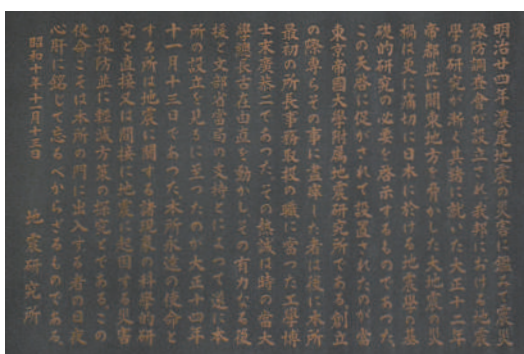 明治廿四年濃尾地震の災害に鑑み震災
豫防調査會が設立され我邦における地震
學の研究が漸く其緒に就いた大正十二年
帝都並に關東地方を脅かした大地震の災
禍は更に痛切に日本に於ける地震學の基
礎的研究の必要を啓示するものであつた
この天啓に促がされて設置されたのが當
東京帝國大學附属地震研究所である創立
の際専らその事に盡瘁した者は後に本所
最初の所長事務取扱の職に當つた工學博
士末廣恭二であつたその熱誠は時の當大
學總長古在由直を動かしその有力なる後
援と文部省當局の支持とによつて遂に本
所の設立を見るに至つたのが大正十四年
十一月十三日であつた本所永遠の使命と
する所は地震に關する諸現象の科學的研
究と直接又は間接に地震に起因する災害
の豫防並に輕減方策の探究とであるこの
使命こそは本所の門に出入する者の日夜
心肝に銘じて忘るべからざるものである
昭和十年十一月十三日
地震研究所